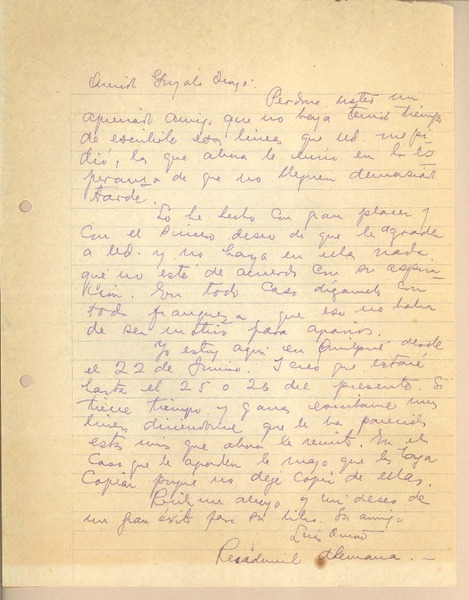 Querido Gonzalo Drago:
Perdone usted mi
apreciado amigo, que no haya tenido tiempo
de escribirle esas líneas que ud. me pi
dió, las que ahora le envío en la es
peranza de que no lleguen demasiado
tarde.
Lo he hecho con gran placer y
con el sincero deseo de que le agraden
a Ud. y no haya en ellas nada
que no esté de acuerdo con su aspira
ción. En todo caso dígamelo con
toda franqueza que eso no habrá
de ser motivo para
Yo estoy aquí en Quilpué desde
el 22 de Junio. Creo que estaré
hasta el 25 o 26 del presente. Si
tiene tiempo y ganas escríbame unas
líneas diciéndome que le ha parecido
esto mío que ahora le remito. En el
caso que le agraden le ruego que las haga
copiar porque no dejé copia de ellas.
Reciba un abrazo y mi deseo de
un gran éxito para su libro. Su amigo
Luis
Residencial Alemana.—